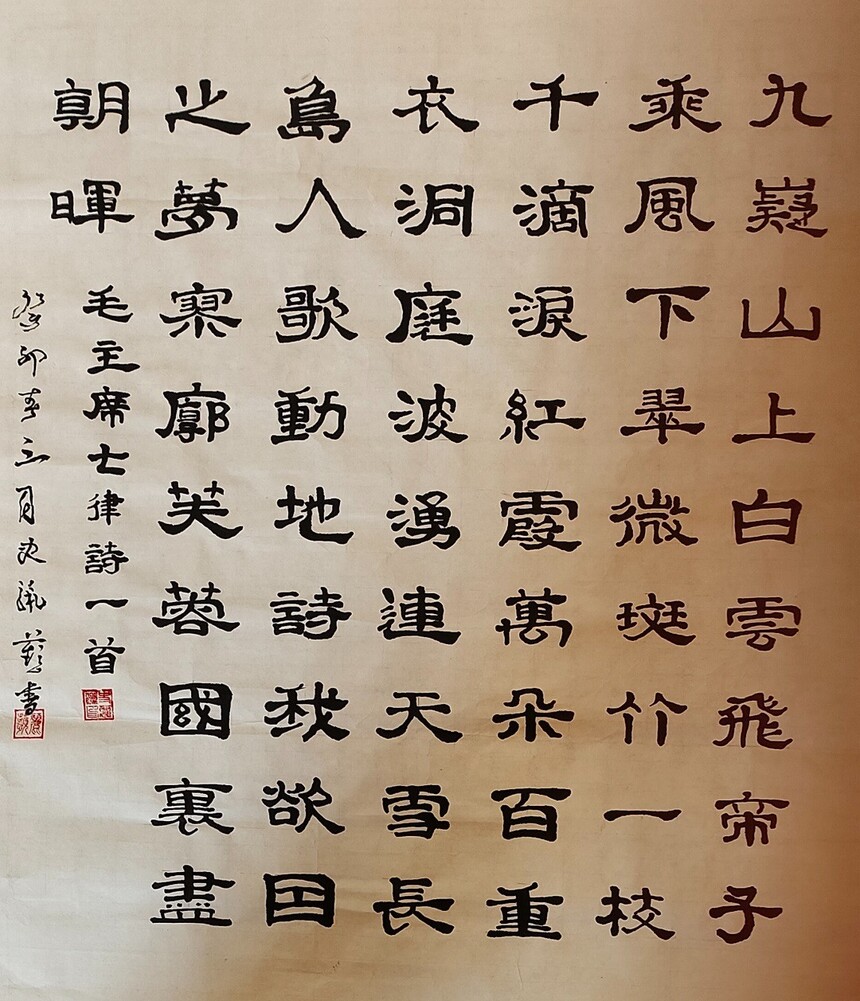 九嶷山上白雲飛帝子
乘風下翠微斑竹一枝
千滴淚紅霞萬朵百重
衣洞庭波湧連天雪長
島人歌動地詩我欲因
之夢寥廓芙蓉國裏盡
朝暉
毛主席士律詩一首
癸卯春三月史書